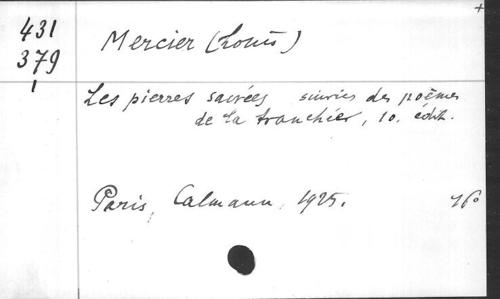 +
431
379
1
Mercier (Louis)
Les pierres sacrées suivies des poèmes
de la tranchée, 10. édit.
Paris, Calmann, 1925. 16°